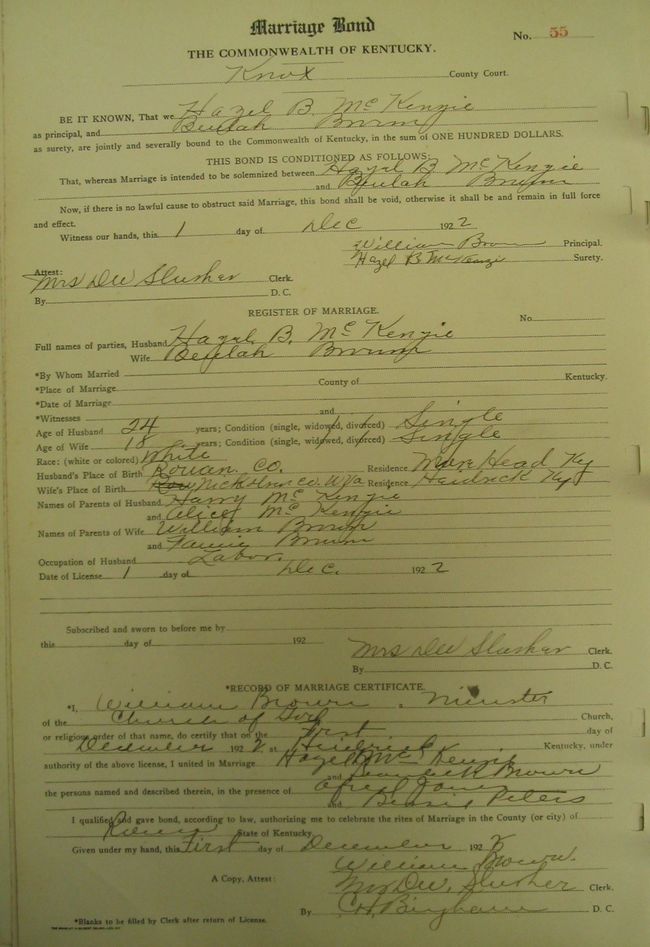 Marriage Bond
No. 55
THE COMMONWEALTH OF KENTUCKY.
Knox County Court.
BE IT KNOWN, That we Hazel B. McKenzie
as principal, and Beulah Brown
as surety, are jointly and severally bound to the Commonwealth of Kentucky, in the sum of ONE HUNDRED DOLLARS.
THIS BOND IS CONDITIONED AS FOLLOWS:
That, whereas Marriage is intended to be solemnized between Hazel B McKenzie
and Beulah Brown
Now, if there is no lawful cause to obstruct said Marriage, this bond shall be void, otherwise it shall be and remain in full force
and effect.
Witness our hands, this 1 day of Dec 1922
William Brown Principal.
Hazel B McKenzi Surety.
Attest:
Mrs DW Slusher Clerk.
By D. C.
REGISTER OF MARRIAGE.
No.
Full names of parties, Husband Hazel B. McKenzie
Wife Beulah Brown
*By Whom Married
*Place of Marriage County of Kentucky.
*Date of Marriage
*Witnesses and
Age of Husband 24 years; Condition (single, widowed, divorced) Single
Age of Wife 18 years; Condition (single, widowed, divorced) Single
Race: (white or colored) White
Husband's Place of Birth Rowan Co. Residence More Head Ky
Wife's Place of Birth Co. W Va Residence Ky
Names of Parents of Husband Harry McKenzie
and Alice McKenzie
Names of Parents of Wife William Brown
and Brown
Occupation of Husband Labor.
Date of License 1 day of Dec. 1922
Subscribed and sworn to before me by
this day of 192
Mrs DW Slusher Clerk.
By D. C.
*RECORD OF MARRIAGE CERTIFICATE.
*I, William Brown, Minister
of the Church of God Church,
or religious order of that name, do certify that on the First day of
December 1922, at Kentucky, under
authority of the above license, I united in Marriage Hazel McKenzie
and Brown
the persons named and described therein, in the presence of
and Bessie Peters
I qualified and gave bond, according to law, authorizing me to celebrate the rites of Marriage in the County (or city) of
State of Kentucky
Given under my hand, this First day of December 1922
William Brown.
A Copy, Attest: Mrs DW. Slusher Clerk.
By CH Bingham D. C.
*Blanks to be filled by Clerk after return of License.